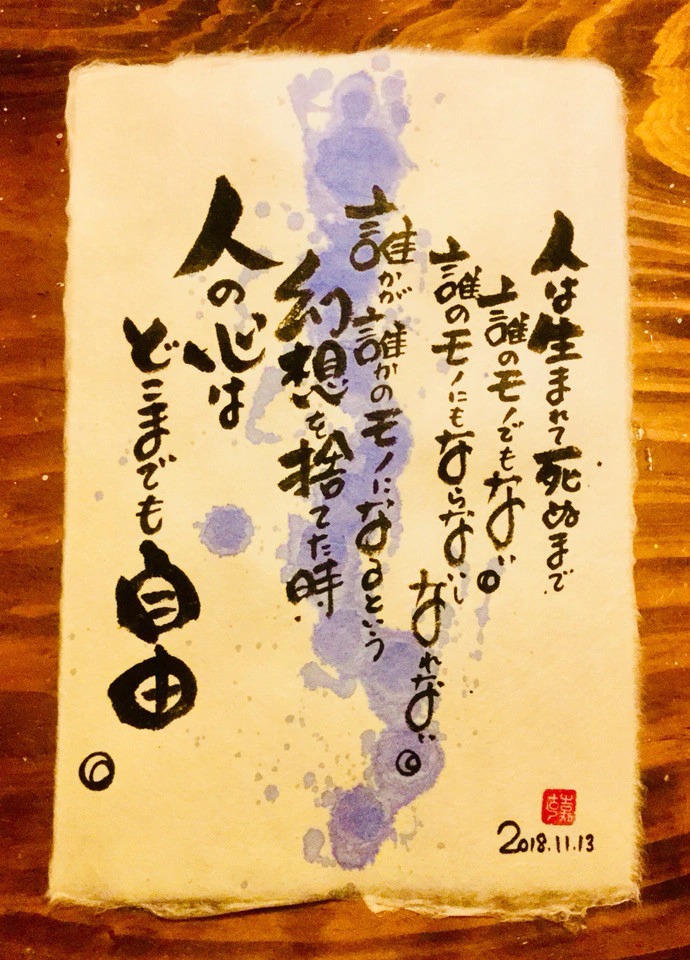 人は生まれて死ぬまで
誰のモノでもない。
誰のモノにもならないし
なれない。
誰かが誰かのモノになるという
幻想を捨てた時
人の心は
どこまでも
自由。
2018.11.13